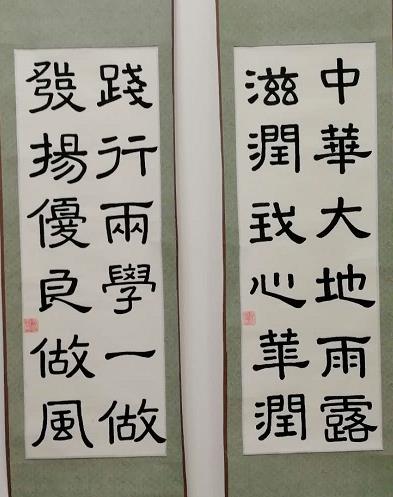 中華大地雨露
滋潤我心華潤
踐行兩學一做
發揚優良做風